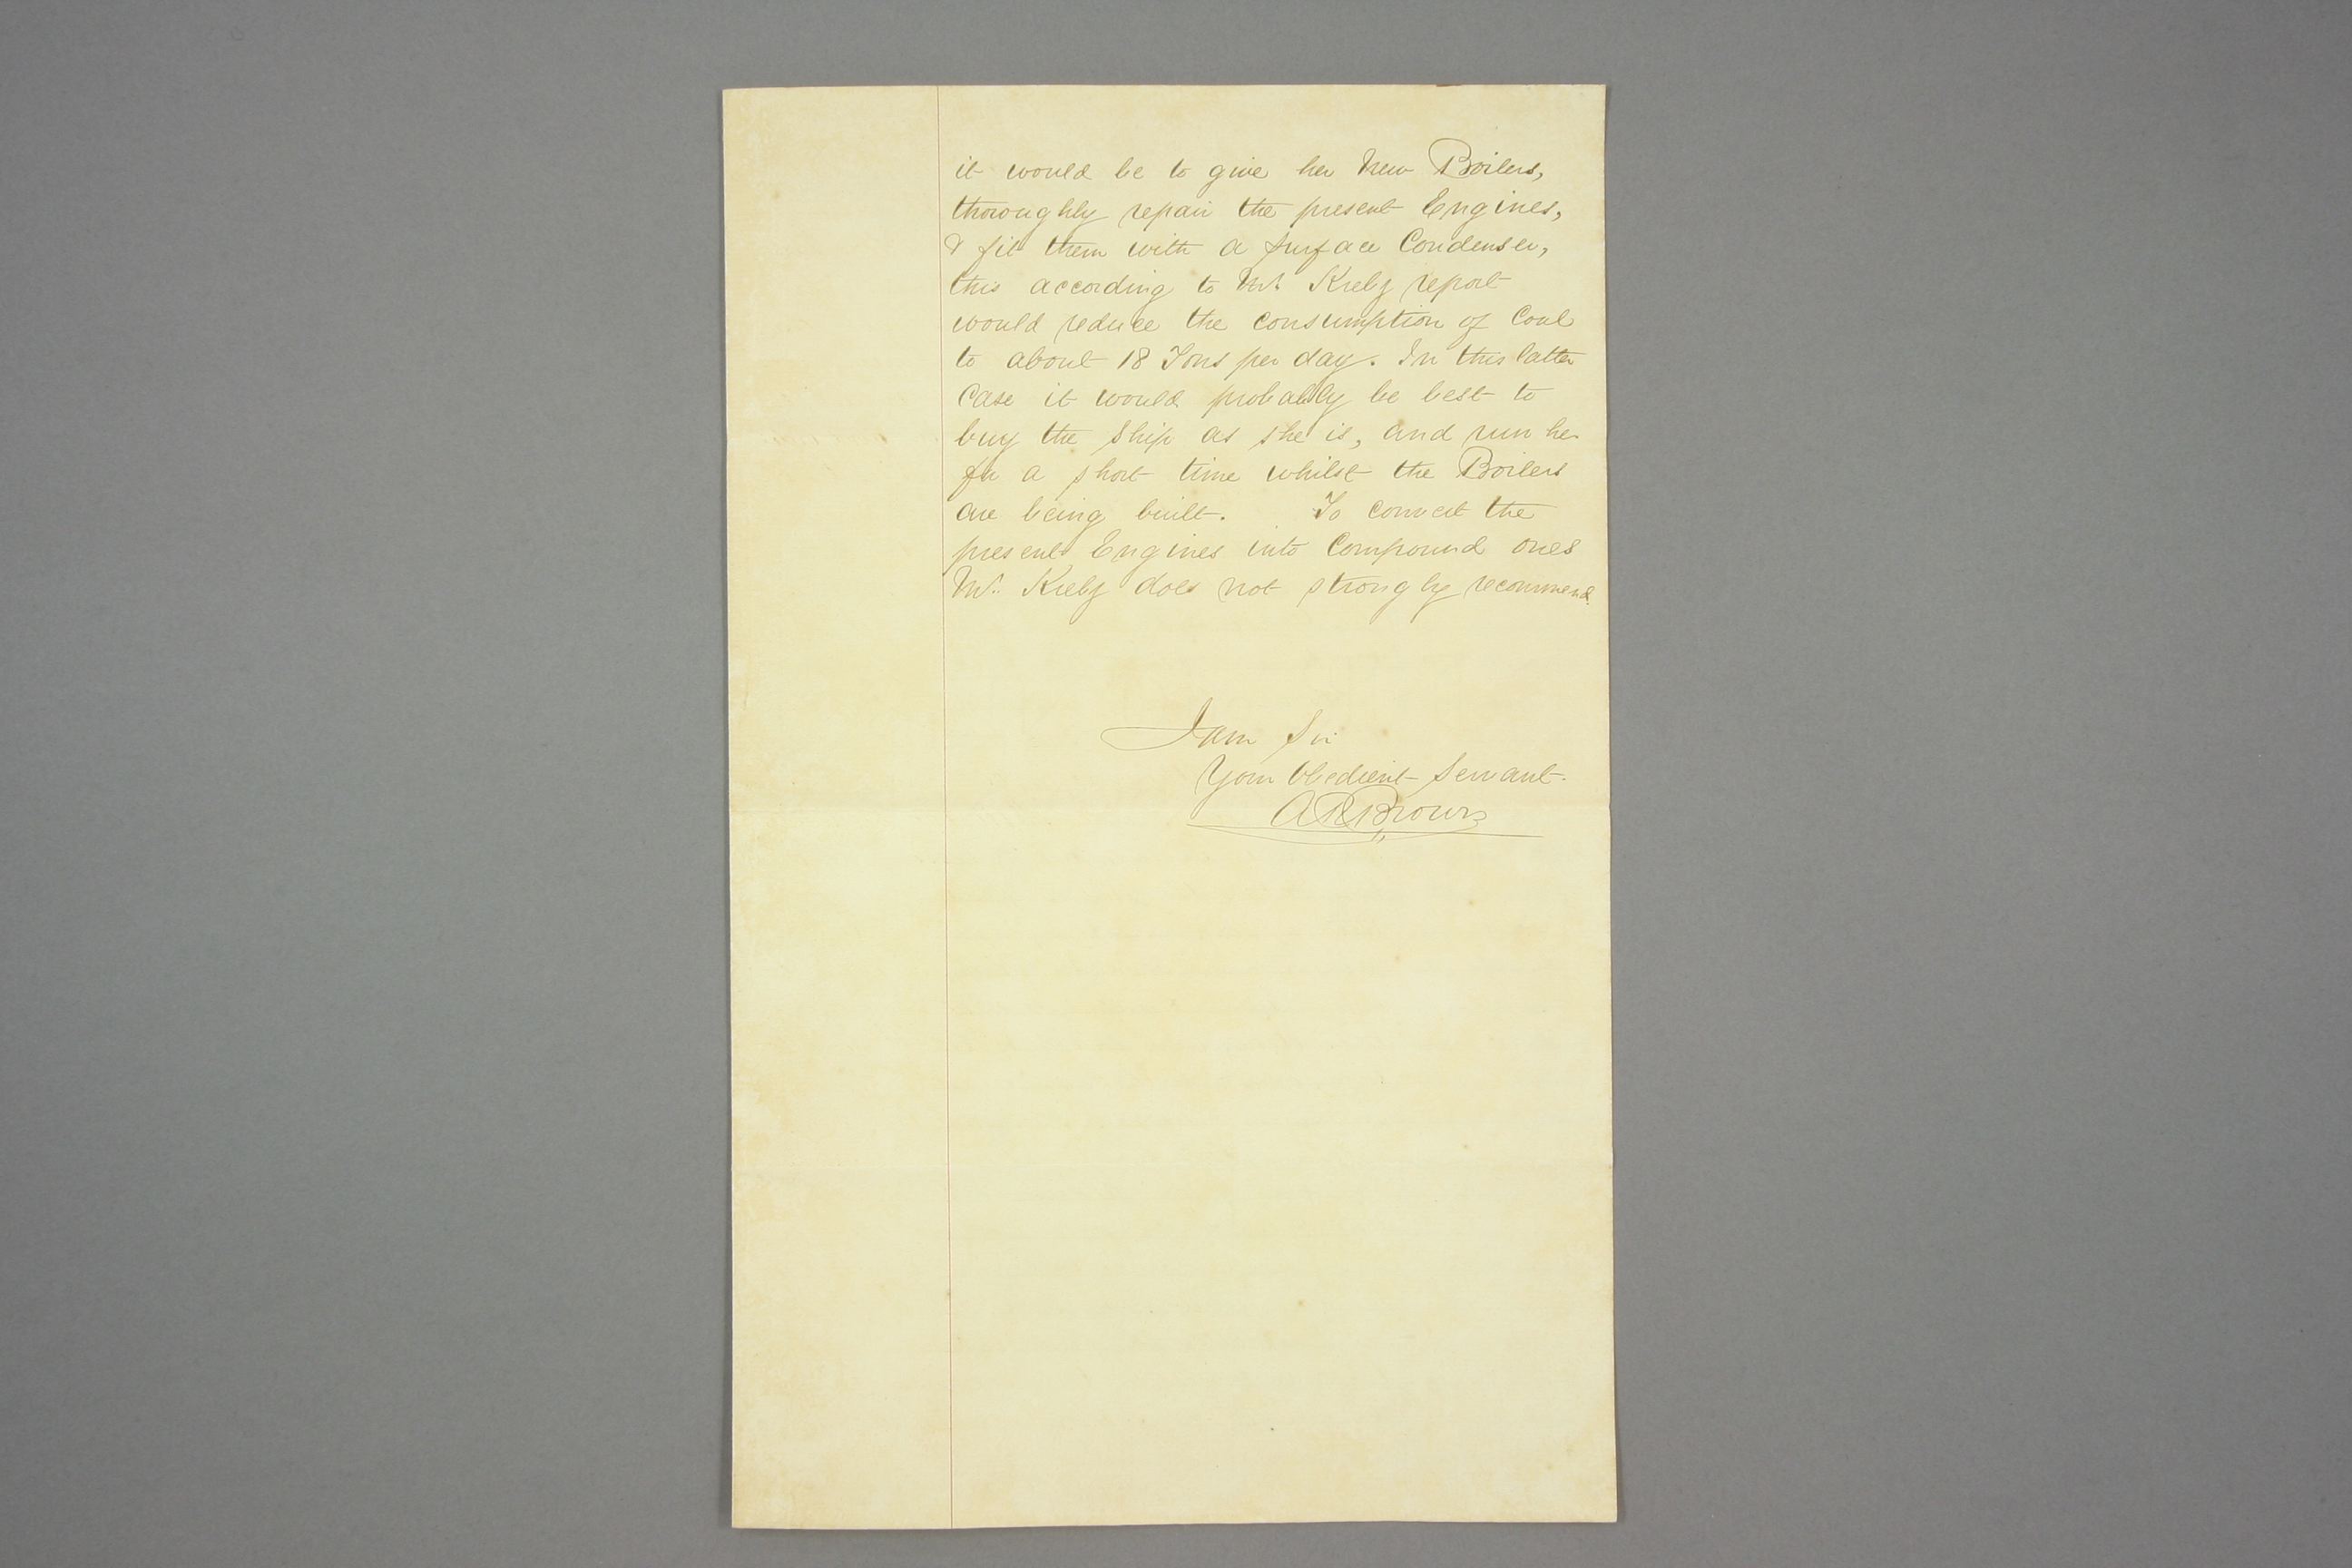 it would be to give her New Boilers,
thoroughly repair the present Engines,
& fit them with a Surface Condenser,
this according to Mr. Kirby report
would reduce the consumption of Coal
to about 18 Tons per day. In this latter
Case it would probably be best to
buy the Ship as she is, and run her
for a short time whilst the Boilers
are being built. To convert the
present Engines into Compound ones
Mr. Kirby does not strongly recommend.
I am Sir
Your Obedient Servant.
A R Brown